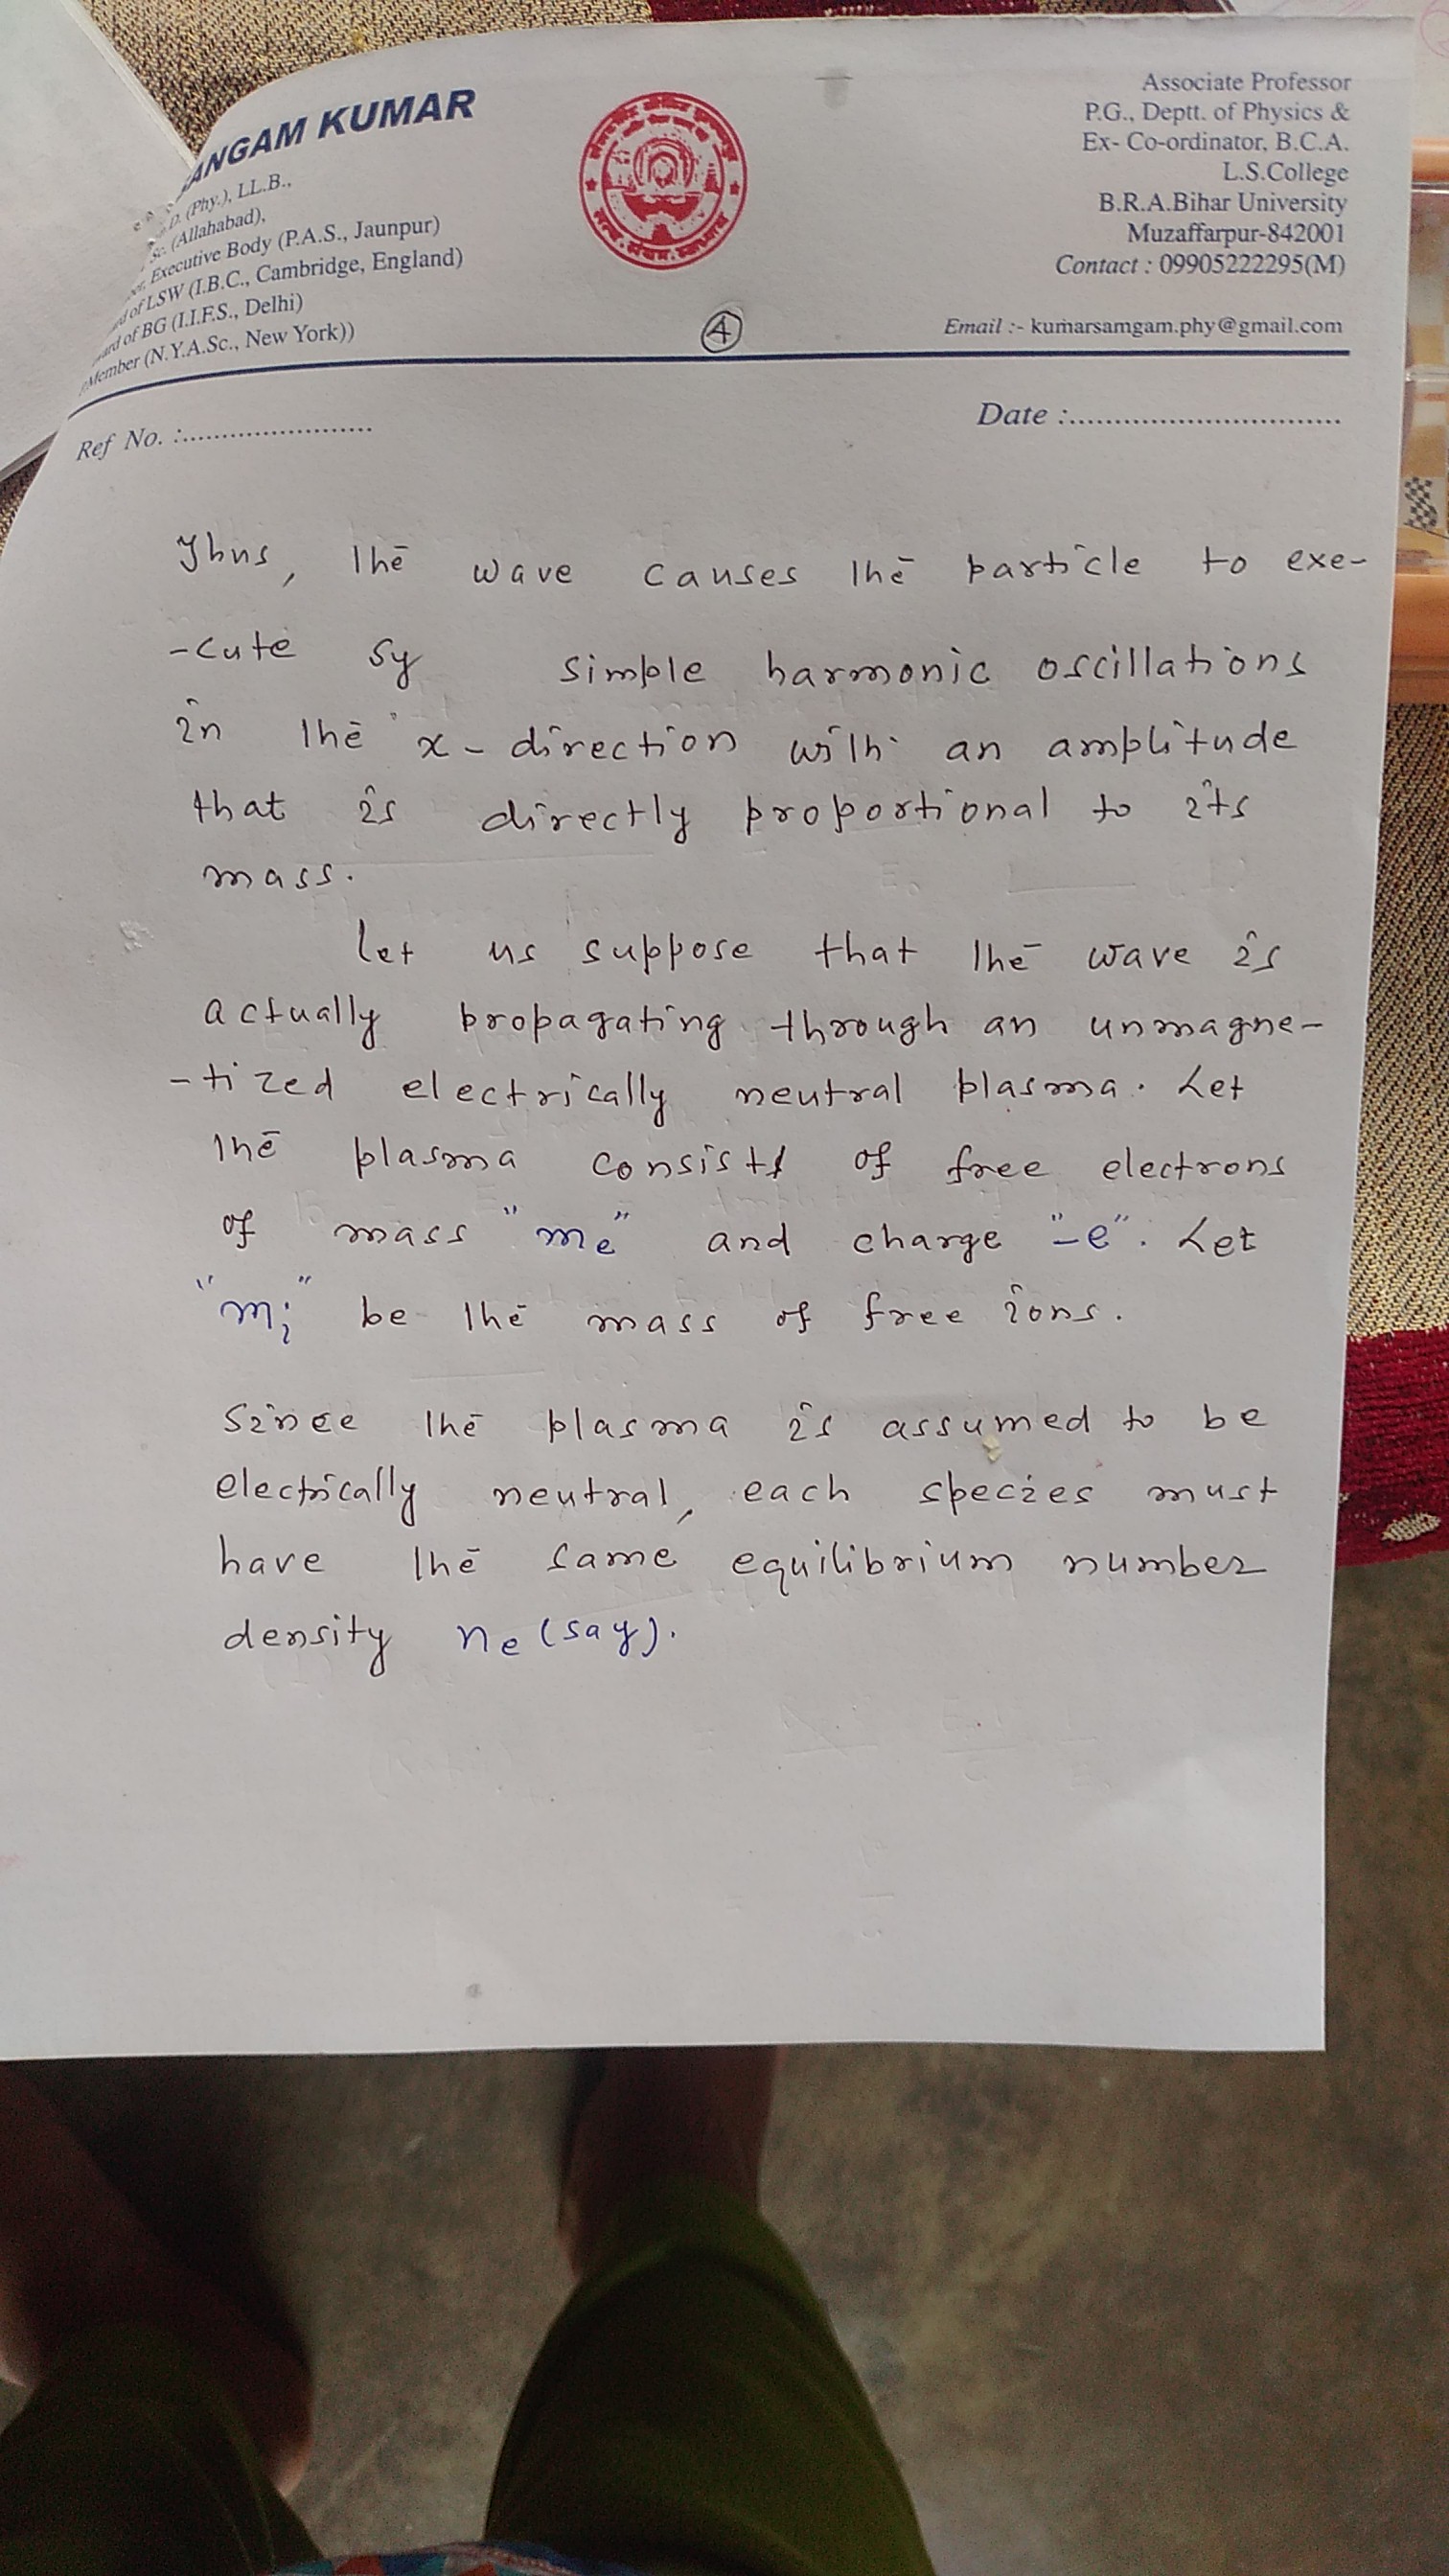 ANGAM KUMAR
D. (Phy.), LL.B.,
Sc. (Allahabad),
Executive Body (P.A.S., Jaunpur)
of LSW (I.B.C., Cambridge, England)
of BG (I.I.F.S., Delhi)
Member (N.Y.A.Sc., New York))
Associate Professor
P.G., Deptt. of Physics &
Ex- Co-ordinator, B.C.A.
L.S.College
B.R.A.Bihar University
Muzaffarpur-842001
Contact : 09905222295(M)
Email :- kumarsamgam.phy@gmail.com
4
Ref No. :........................
Date :..............................
Thus, the wave causes the particle to exe-
-cute sy simple harmonic oscillations
in the x-direction with an amplitude
that is directly proportional to its
mass.
Let us suppose that the wave is
actually propagating through an unmagne-
-tized electrically neutral plasma. Let
the plasma consists of free electrons
of mass "me" and charge "-e". Let
"mi" be the mass of free ions.
Since the plasma is assumed to be
electrically neutral, each species must
have the same equilibrium number
density ne (say).